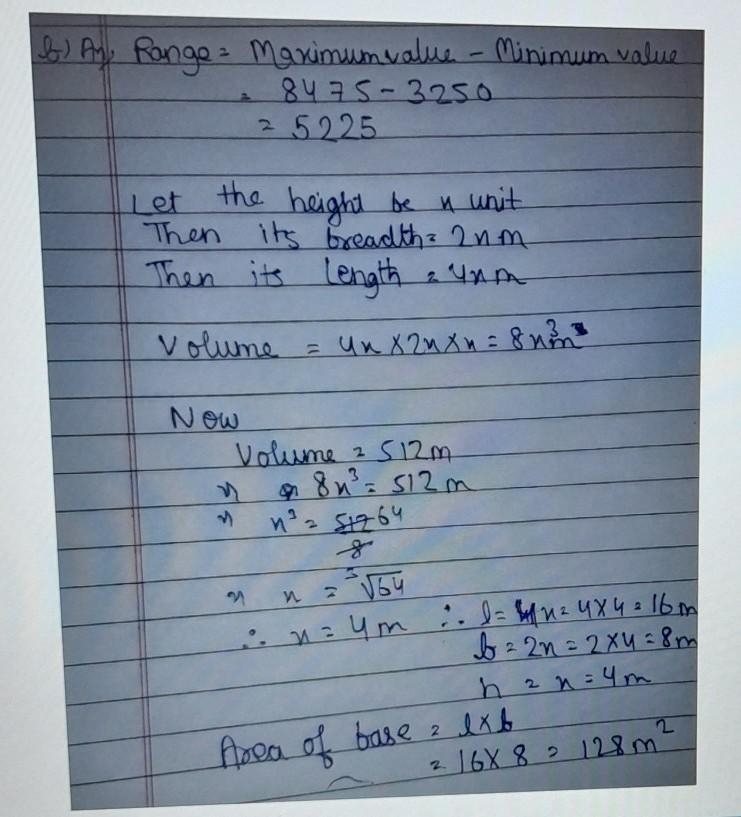 b) Ans. Range = Maximum value - Minimum value
= 8475 - 3250
= 5225
Let the height be x unit
Then its breadth = 2x m
Then its length = 4x m
Volume = 4x × 2x × x = 8x³m³
Now
Volume = 512m
8x³ = 512 m
x³ = 512 64
8
x = ³√64
∴ x = 4m ∴ l = 4x = 4×4 = 16m
b = 2x = 2×4 = 8m
h = x = 4m
Area of base = l×b
= 16×8 = 128m²